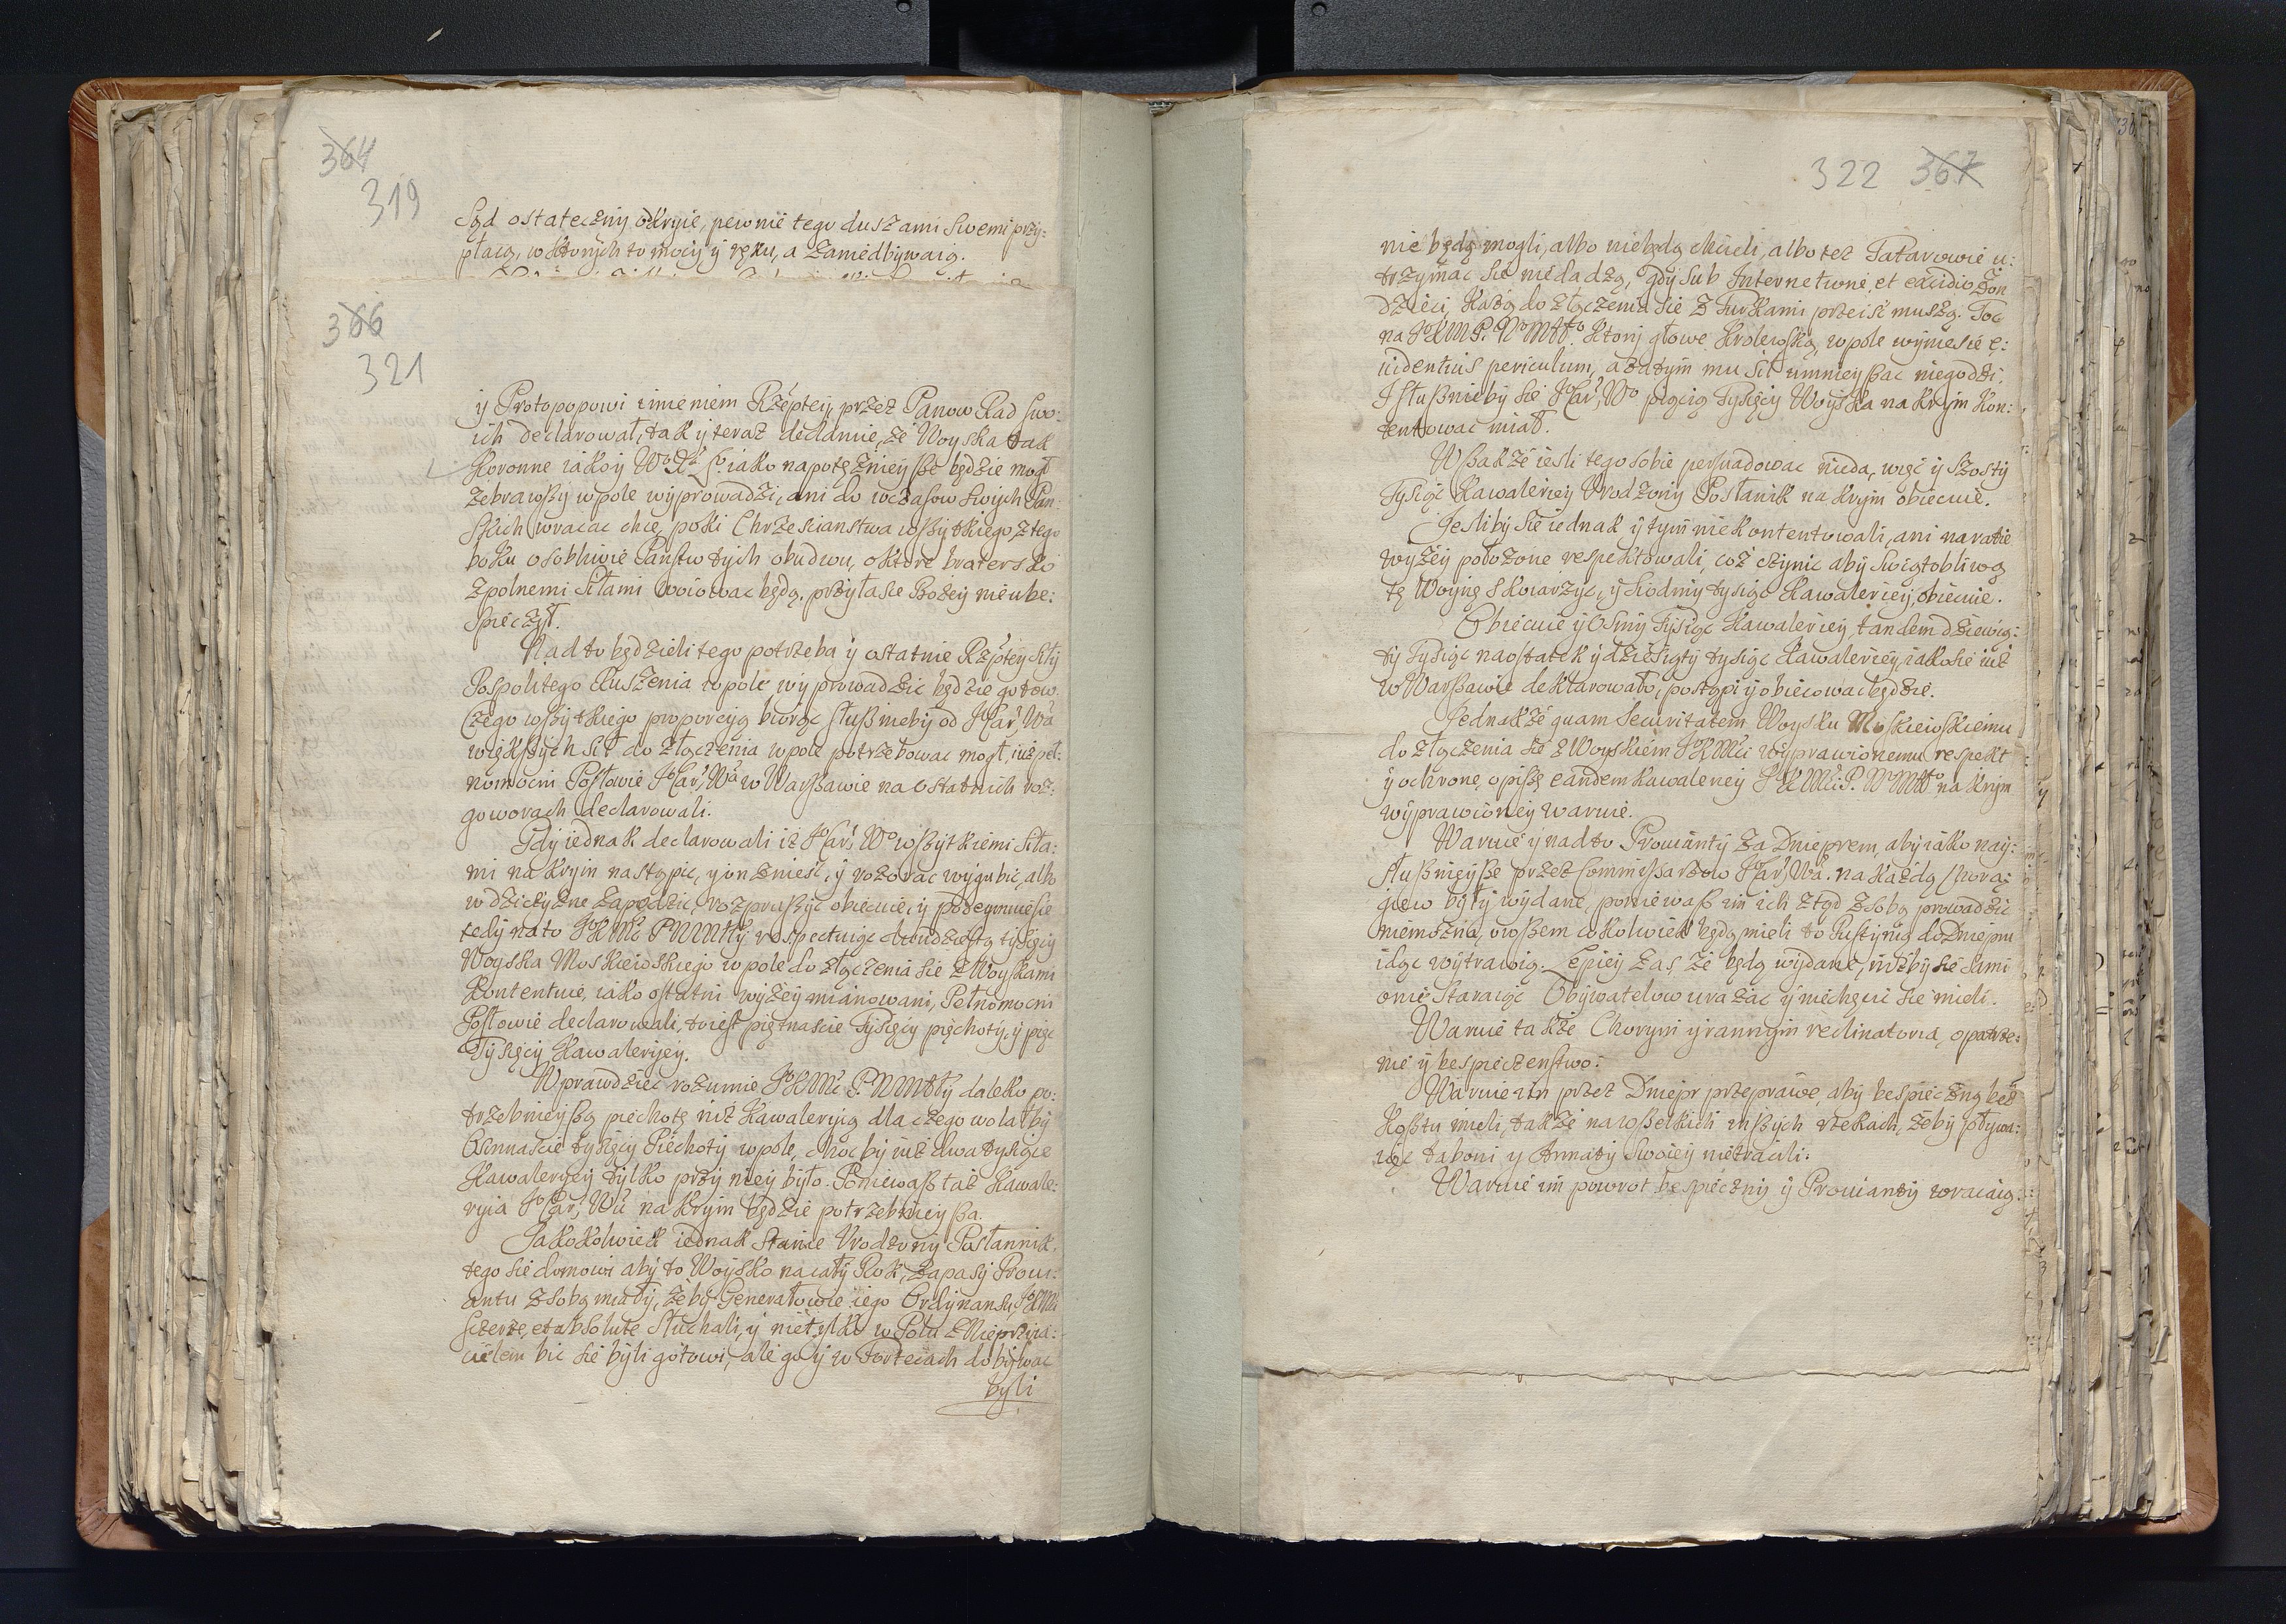 364
319
Sąd ostateczny okryie, pewnie tego duszami swemi przy:
płacą, w których to mocy y ręku, a zaniedbywaią.
366
321
y Protopopowi imieniem Rzeptey, przez Panow Rad swo:
ich declarował, tak y teraz declaruie, że Woyska tak
Koronne iako y WXLo iako napotężnieysze będzie mogł
zebrawszy w pole wyprowadzi, ani do wczasow swych Pań:
skich wracac chce, poki Chrzescianstwa wszytkiego, z tego
boku osobliwie Państw tych obudwu, o ktore bratersko
zpolnemi siłami woiowac będą, przy łasce Bozey nie ube:
spieczył.
Nad to będzieli tego potrzeba y ostatnie Rzeptey siły
Pospolitego Ruszenia w pole wyprowadzic będzie gotow
Czego wszytkiego proporcyą biorąc słusznieby od JoCar. Wa
większych sił do złączenia w pole potrzebowac mogł, iuż peł:
nomocni Posłowie JoCar. Wa w Warszawie na ostatnich roz:
goworach declarowali.
Gdy iednak declarowali iż JoCar. Wo wszytkiemi siła:
mi na Krym nastąpic, y on znieść, y rozorac wygubic, albo
w dziczyzne zapędzic, rozpruszyc obiecuie, y podeymuie sie
tedy na to JoKMc PNMMty respectuiąc dwudziestą tysięcy
Woyska Moskiewskiego w pole do złączenia sie z Woyskami
Kontentuie, iako ostatni wyżey mianowani, Pełnomocni
Posłowie declarowali, to iest piętnascie Tysięcy piechoty, y pięc
Tysięcy Kawaleryey.
Wprawdzie rozumie JoKMc P.NMMtty daleko po:
trzebnieyszą piechotę niż Kawaleryią dla czego wolałby
Osmnascie tysięcy Piechoty w pole, choc by iuż dwa tysiące
Kawaleryey tylko przy niey było. Poniewasz taż Kawale:
ryia JoCar. Wu na Krym będzie potrzebnieysza.
Jakożkolwiek iednak stanie Urodzony Posłannik,
tego sie domowi aby to Woysko na cały Rok, zapasy Prowi:
antu z sobą miały, żeby Generałowie iego Ordynansu JoKMci
szczerze, et absolute słuchali, y nie tylko w Polu z Nieprzyia:
cielem bic sie byli gotowi, ale go y w Fortecach dobywac
byli
322 367
nie będą mogli, albo niebędą chcieli, albo tez Tatarowie u:
trzymac sie niedadzą, gdy sub Internetione, et excidio Zon
Dzieci, każą do złączenia sie z Turkami przeiść muszą. Toć
na JoKM P. NoMMtto. Ktory głowe Krolewską, w pole wyniesie e:
uidentius periculum, a zatym mu sił umnieyszac niegodzi.
I słusznieby sie JoCar. Wo pięcią Tysięcy Woyska na Krym Kon:
tentowac miał.
Wszakże iesli tego sobie persuadowac nieda, więc y szosty
Tysiąc Kawaleriey Urodzony Posłanik na Krym obiecuie.
Jesliby sie iednak y tym niekontentowali, ani na ratie
wyżey położone respektowali, coż czynic aby swiątobliwą
tę Woynę skoiarzyc, y siodmy tysiąc Kawaleriey, obiecuie.
Obiecuie y Osmy Tysiąc Kawaleriey, tandem dziewią:
ty Tysiąc naostatek y dziesiąty tysiąc Kawaleriey, iako sie iuż
w Warszawie deklarowało, postąpi y obiecowac będzie.
Jednakże quam Securitatem Woysku Moskiewskiemu
do złączenia sie z Woyskiem JoKMci wyprawionemu respekt
y ochronę, opisze eandem Kawaleriey JoKMci P. NoMMtto na Krym
wyprawioney waruie.
Waruie y nad to Prowianty za Dnieprem, aby iako nay:
słusznieysze przez Commissarzow JoCar. Wa. na każdą Chorą:
giew były wydane, poniewasz im ich ztąd z sobą prowadzic
niemożna, owszem cokolwiek będą mieli to Pustynią do Dniepru
idąc wytrawią. Lepiey zas że będą wydane, niżby sie sami
o nie staraiąc Obywatelow urażac y niechęci sie mieli.
Waruie także Chorym y rannym reclinatoria, opatrze:
nie y bespieczenstwo:
Waruie im przez Dniepr przeprawe, aby bespieczną bez
kosztu mieli, także na wszelkich inszych rzekach, żeby pływa:
iąc taboru y Armaty swoiey nietracili.
Waruie im powrot bespieczny y Prowianty wracaią: